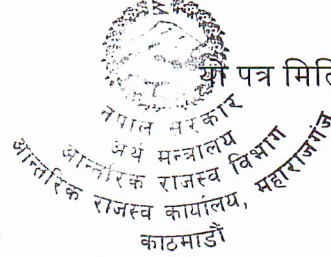 यो पत्र मिति
नेपाल सरकार
अर्थ मन्त्रालय
आन्तरिक राजस्व विभाग
आन्तरिक राजस्व कार्यालय, महाराजगंज
काठमाडौं